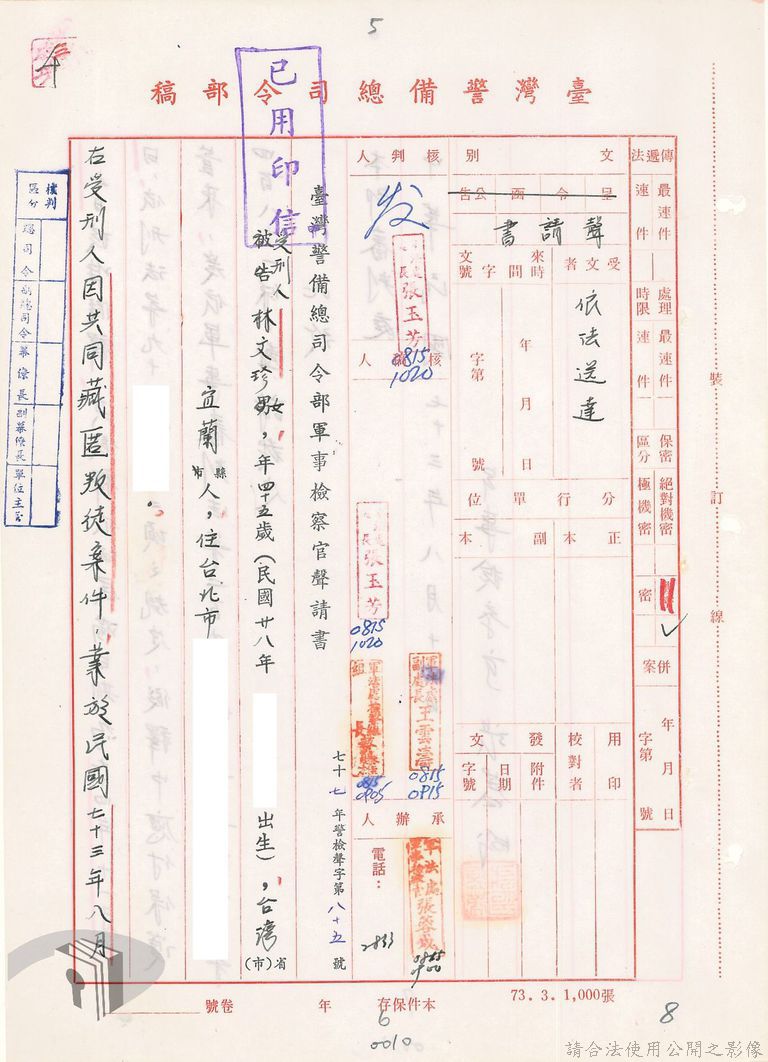 5
臺灣警備總司令部稿
已用印信
傳遞法
最速件
速件
處理時限
最速件
速件
保密區分
絕對機密
極機密
密
併案
年月日
字第號
文別
呈令函公告
聲請書
受文者
依法送達
來文
時間
字號
年月日
字第號
分行單位
正本
副本
用印
校對者
發文
附件
日期
字號
核判人
发
張玉芳
0815
1020
核稿人
張玉芳
0815
1020
軍法處副處長王雲濤
0815
0915
0815
0905
承辦人
軍法處
張蓉城
0815
0900
電話:2833
臺灣警備總司令部軍事檢察官聲請書
七十七年警檢聲字第八十五號
被告
受刑人
林文珍 男女,年四十五歲(民國廿八年
出生),台灣省(市)
宜蘭縣市人,住台北市
。
右受刑人因共同藏匿叛徒案件,業於民國七十三年八月
核判區分
總司令
副總司令
幕僚長
副幕僚長
單位主管
裝訂線
73. 3. 1,000張
本件保存
年
卷號
6
0010
8
請合法使用公開之影像